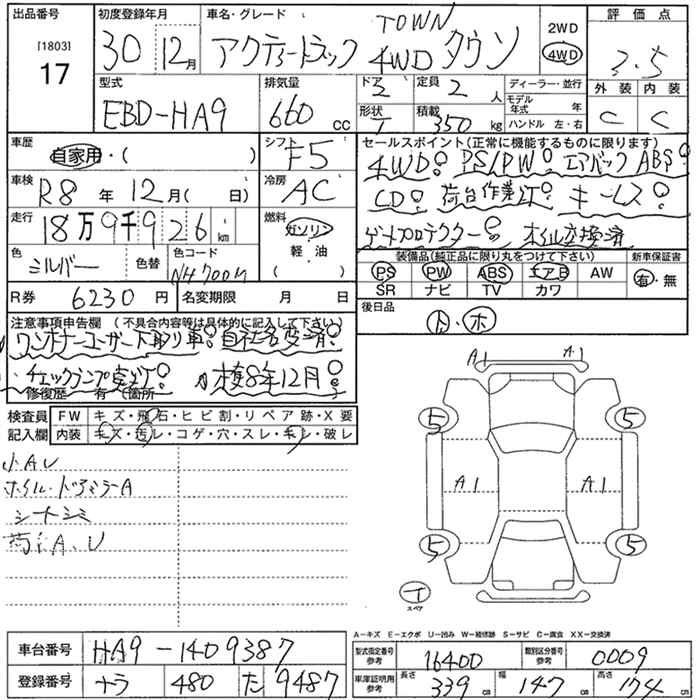 出品番号 [1803] 17
初度登録年月 30 12月
車名・グレード アクティートラック TOWN 4WD タウン
2WD 4WD
評価点 3.5
外装 内装 C C
型式 EBD-HA9
排気量 660 cc
ドア 2
定員 2 人
形状 T
積載 350 kg
ディーラー・並行
モデル年式 年
ハンドル 左・右
車歴 自家用・( )
シフト F5
車検 R8年 12月( 日)
冷房 AC
走行 18万9千926 km
燃料 ガソリン 軽・油 ( )
色 シルバー 色替
色コード NH700M
R券 6230円
名変期限 月 日
セールスポイント(正常に機能するものに限ります)
4WD! PS/PW! エアバック ABS!
CD! 荷台作業灯! キーレス!
ゲートプロテクター!
装備品(純正品に限り丸をつけて下さい)
PS PW ABS エアB AW
SR ナビ TV カワ
新車保証書 有・無
後日品 ト・ホ
注意事項申告欄 (不具合内容等は具体的に記入して下さい)
ワンオーナーユーザー下取り車! 自社名変済!
チェックランプ点灯! 車検8年12月!
修復歴 有 (箇所
検査員記入欄
FW キズ・飛石・ヒビ割・リペア跡・X要
内装 キズ・汚レ・コゲ・穴・スレ・キレ・破レ
小AU
ホイル・ドアミラーA
シートシミ
荷台A、U
A1 A1
5 5
A1 A1
5 5
T スペア
A-キズ E-エクボ U-凹み W-補修跡 S-サビ C-腐食 XX-交換済
車台番号 HA9-1409387
登録番号 ナラ 480 た 9487
型式指定番号 参考 16400
類別区分番号 参考 0009
車庫証明用 参考 長さ 339 cm 幅 147 cm 高さ 174 cm